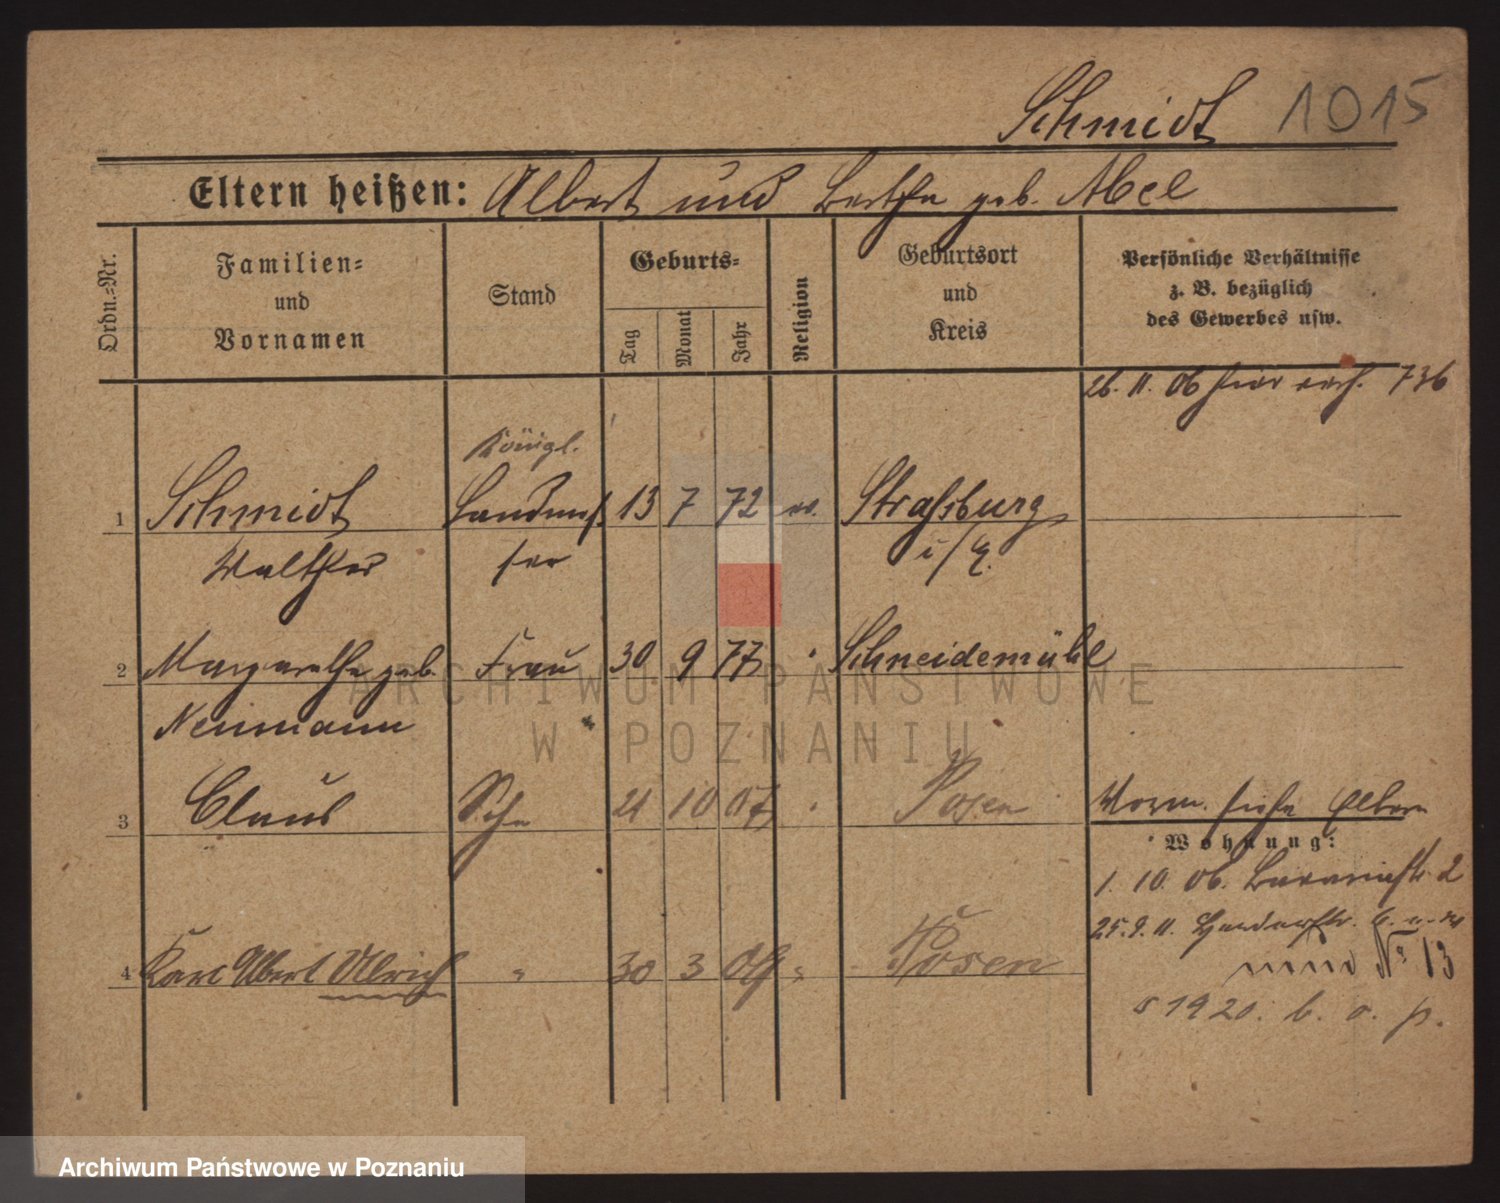 Schmidt 1015
Eltern heißen: Albert und Bertha geb. Abel
Ordn.-Nr.
Familien-
und
Vornamen
Stand
Geburts-
Tag
Monat
Jahr
Religion
Geburtsort
und
Kreis
Persönliche Verhältnisse
z. B. bezüglich
des Gewerbes usw.
26. 11. 06 hier 736
Königl.
1 Schmidt Landmes 13 7 72 ev. Strassburg
Walther ser i/E.
2 Margarethe geb. Frau 30 9 77 " Schneidemühl
Neumann
3 Claus Sohn 21 10 07 " Posen
Worm. siehe Eltern
Wohnung:
1. 10. 06. 2
25. 9. 11. Herderstr.
4 Karl Albert Ulrich " 30 3 09 " Posen
No 13
1920. b. o. p.
ARCHIWUM PAŃSTWOWE
W POZNANIU
Archiwum Państwowe w Poznaniu